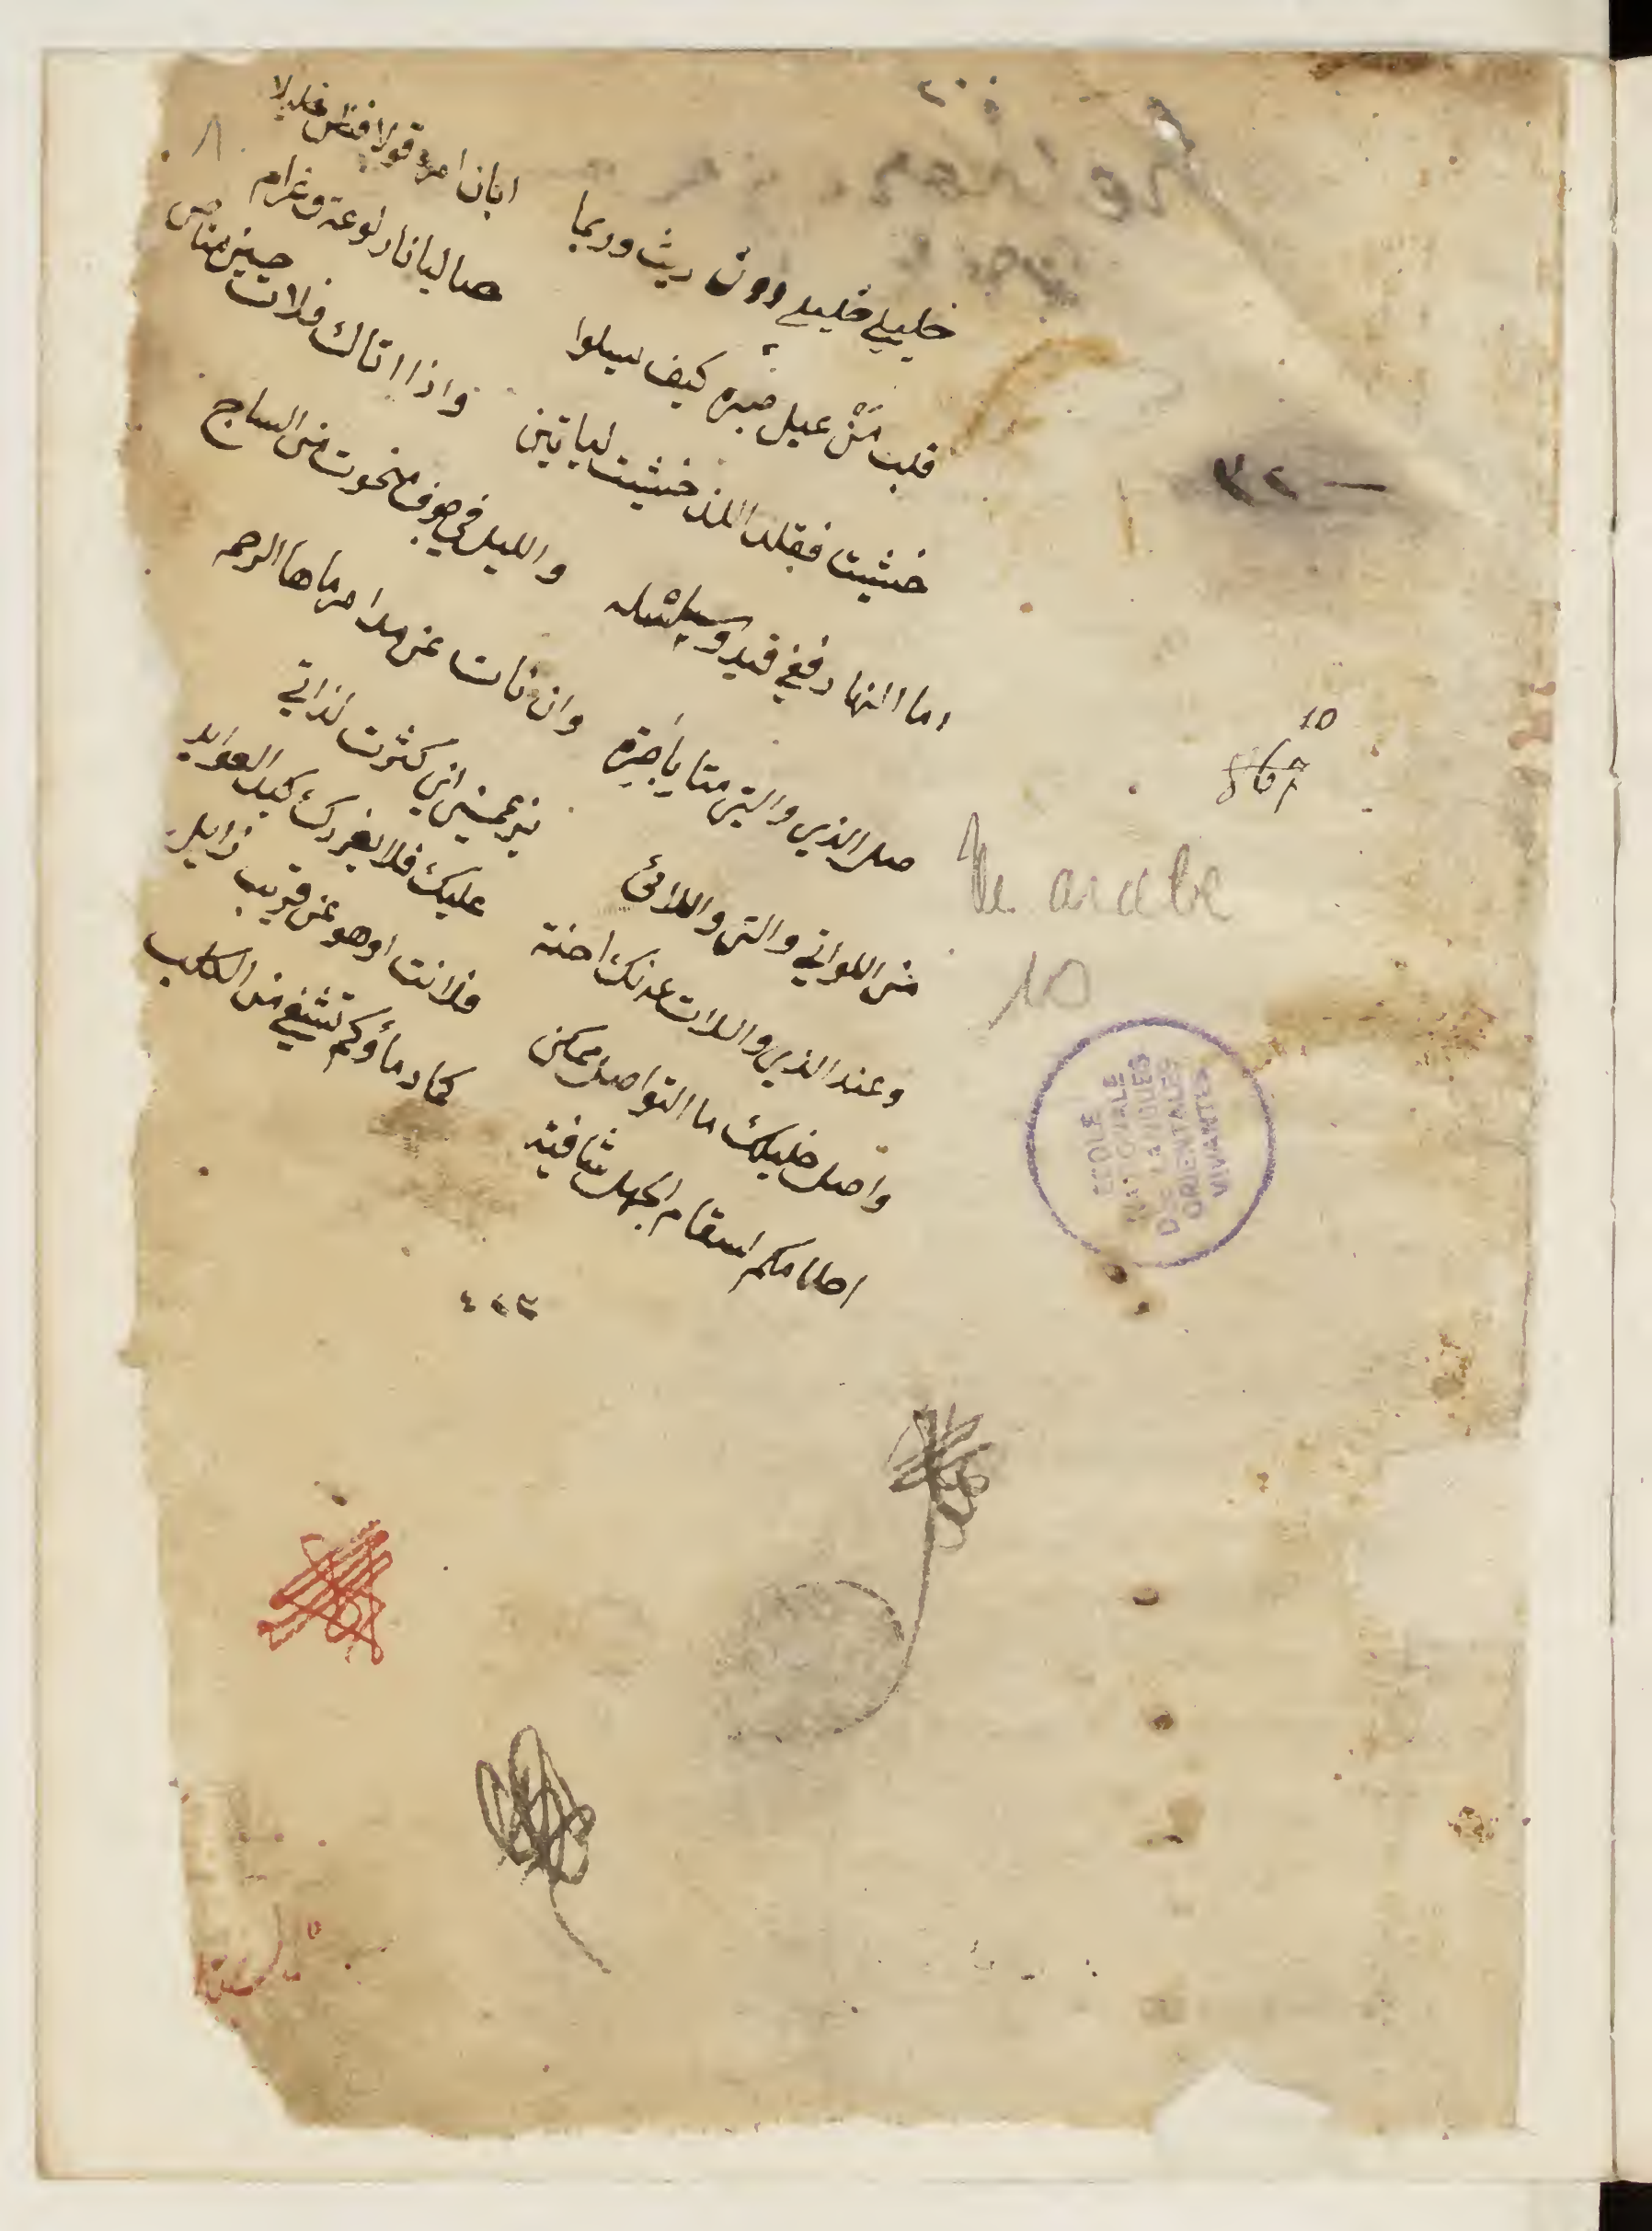 خليلي خليلي دون ريث وربما ابان امرؤ قولا فظن خليلا
قلب مَنْ عيل صبره كيف يسلوا صاليا نار لوعة وغرام
خشيت فقلد اللذ خشيت لياتين واذا اتاك فلات حين مناص
اما النهار ففي قيد وسلسلة والليل في جوف منحوت من الساج
صل الذي والتي متا باصرة وان نات عن مدا مرماها الرحم
من اللواتي والتي واللاتي يزعمن اني كثرت لذاتي
وعند الذي واللات عدنك احنة عليك فلا يغررك كيد العوايد
واصل خليلك ما التواصل ممكن فلانت او هو عن قريب زايل
احلامكم لسقام الجهل شافية كما دماؤكم تشفي من الكلب
٤٢٣
٢٢
10
867
Ms. arabe
10
ECOLE
NATIONALE
DES LANGUES
ORIENTALES
VIVANTES